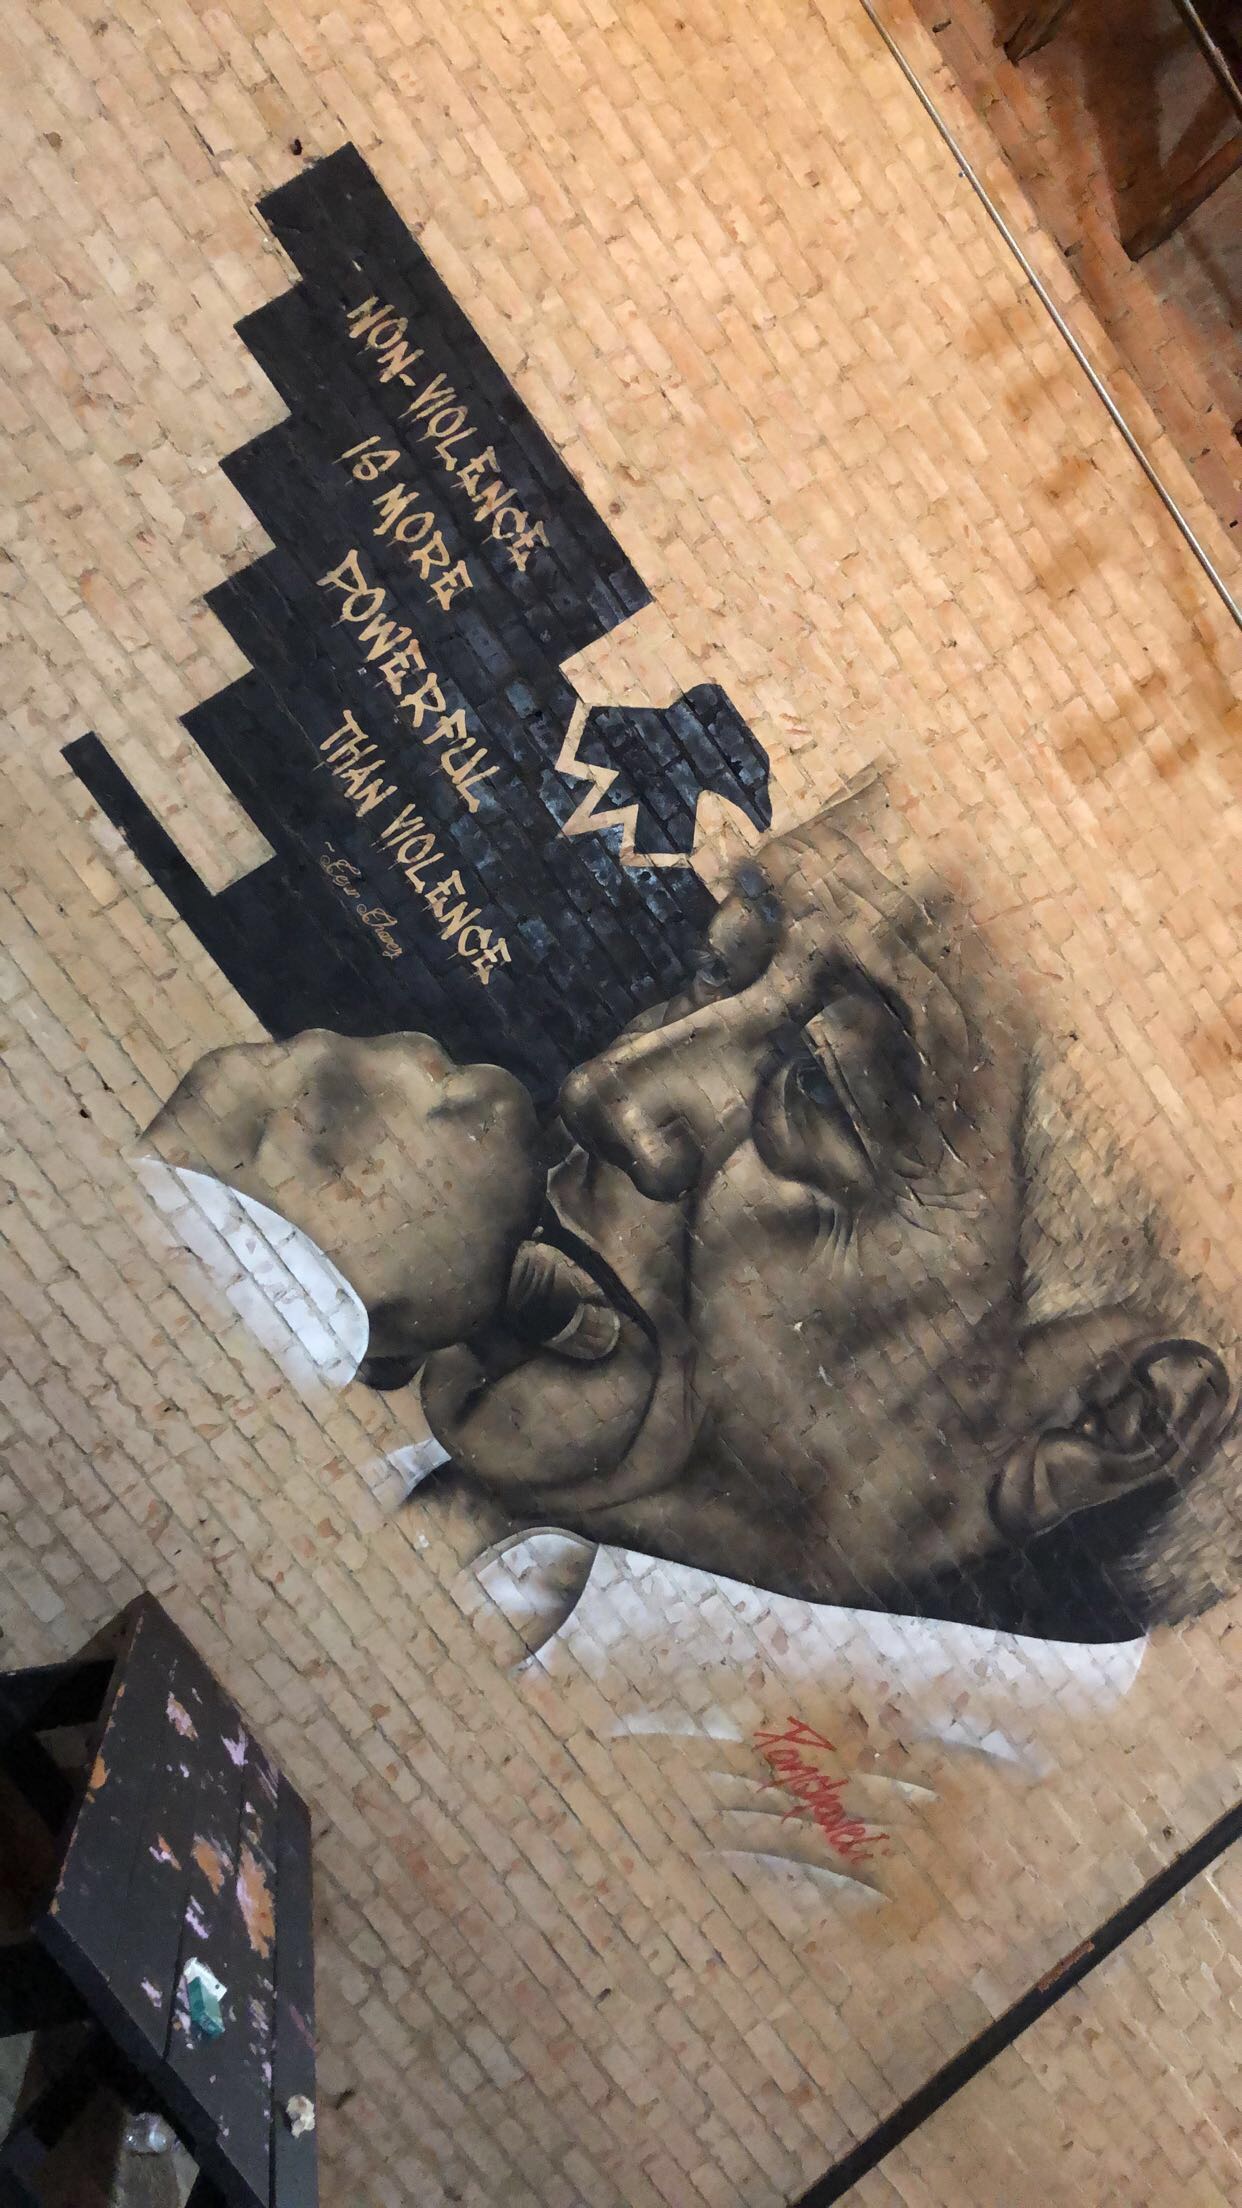 NON-VIOLENCE
IS MORE
POWERFUL
THAN VIOLENCE
~ Cesar Chavez